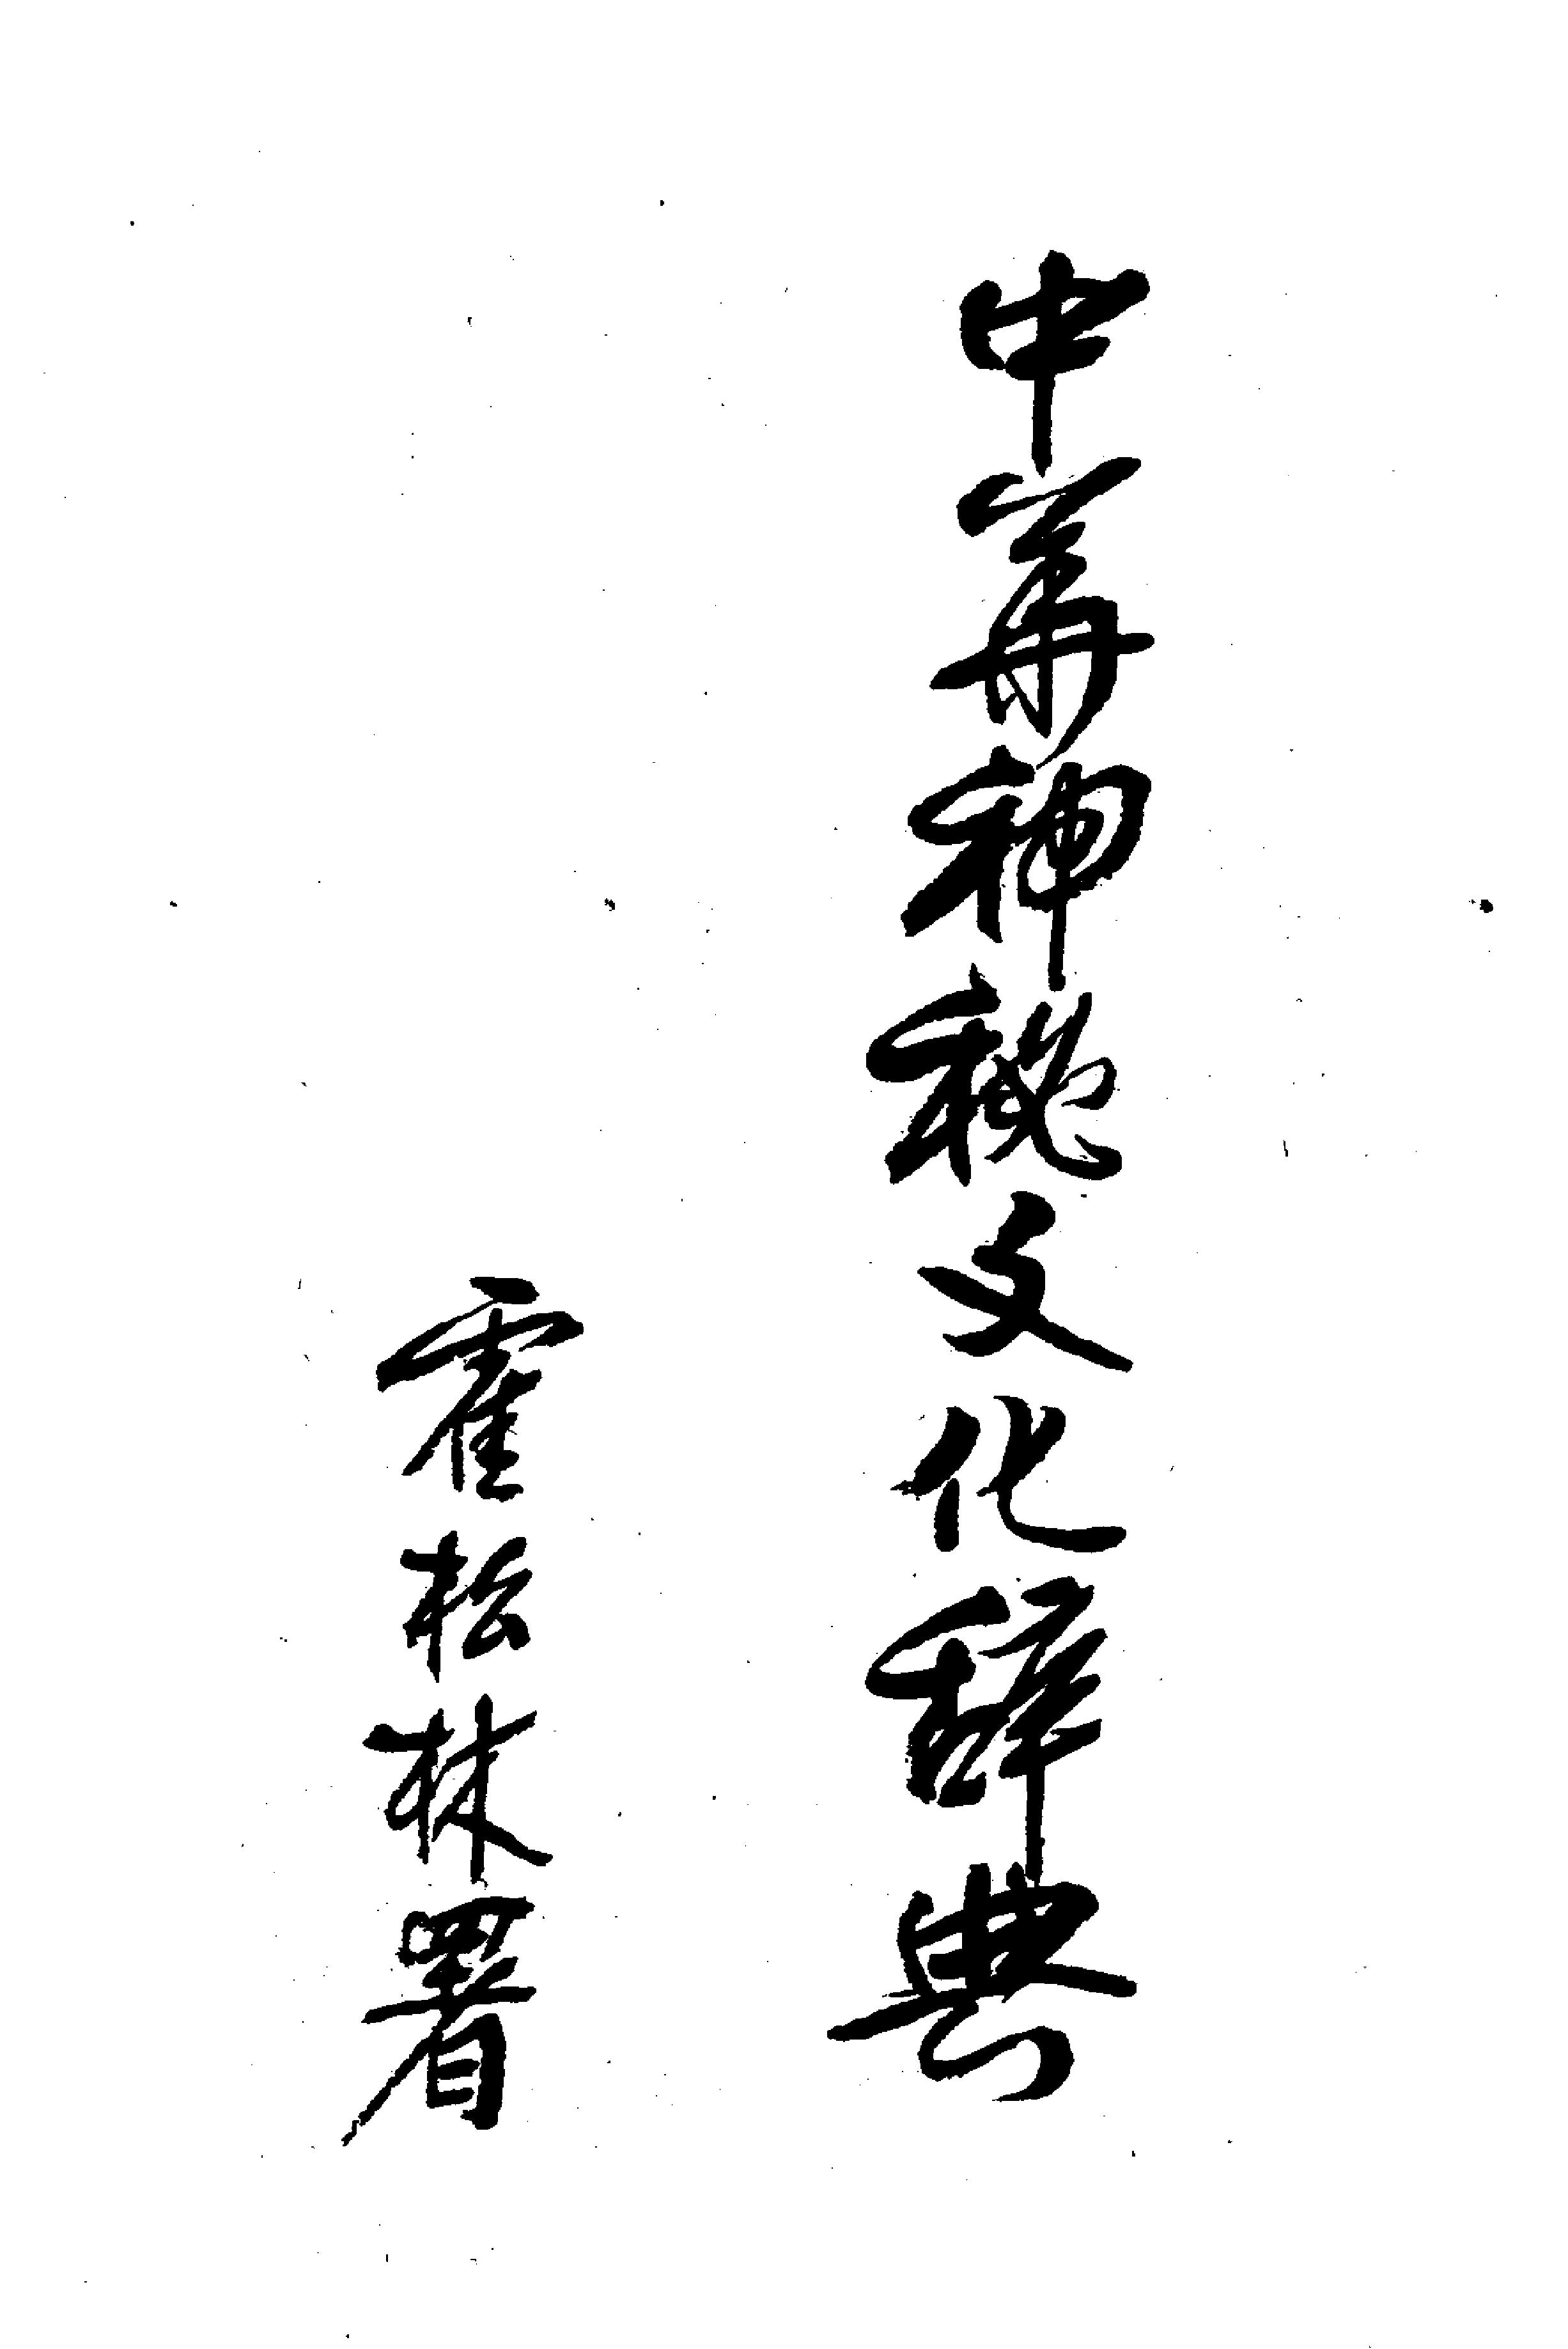 中華神秘文化辞典
霍松林署